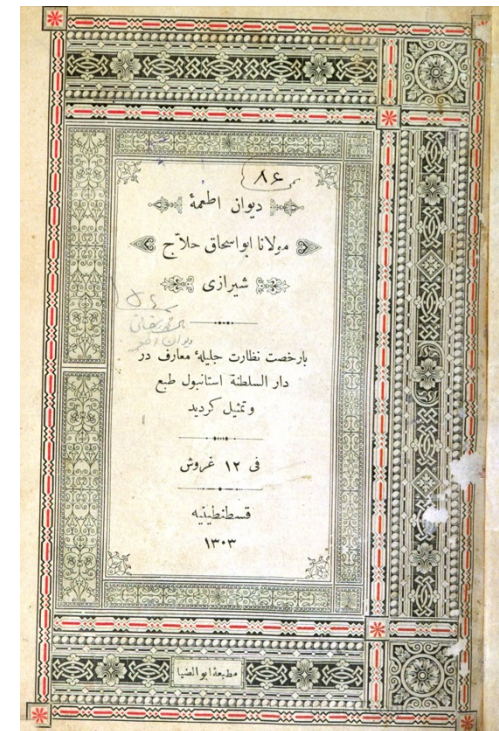 ۸۶
دیوان اطعمهٔ
مولانا ابواسحاق حلاّج
شیرازی
بارخصت نظارت جلیلهٔ معارف در
دار السلطنة استانبول طبع
وتمثیل کردید
فی ۱۲ غروش
قسطنطینیه
۱۳۰۳
مطبعهٔ ابوالضیا